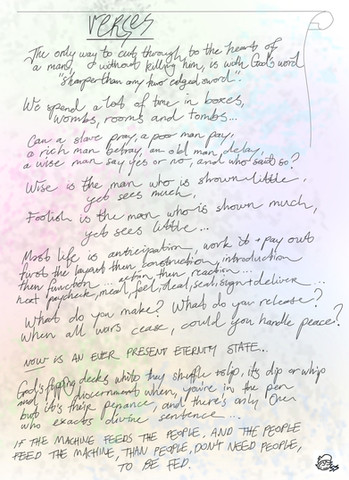 VERSES
The only way to cut through, to the hearts of
a man, & without killing him, is with God's word
"sharper than any two edged sword".
We spend a lot of time in boxes,
wombs, rooms and tombs...
Can a slave pray, a poor man pay,
a rich man betray, an old man delay,
a wise man say yes or no, and who said so?
Wise is the man who is shown little,
yet sees much,
Foolish is the man who is shown much,
yet sees little...
Most life is anticipation, work it + pay out
first the layout then construction, introduction
then function ... action then reaction ...
next paycheck, meal, fuel, deal, seal, sign + deliver ...
What do you make? What do you release?
When all wars cease, could you handle peace?
NOW IS AN EVER PRESENT ETERNITY STATE...
God's flipping decks while they shuffle to slip, its dip or whip
and discernment when, you're in the pen
but it's their penance, and there's only One
who exacts divine sentence ...
IF THE MACHINE FEEDS THE PEOPLE, AND THE PEOPLE
FEED THE MACHINE, THAN PEOPLE, DON'T NEED PEOPLE,
TO BE FED.